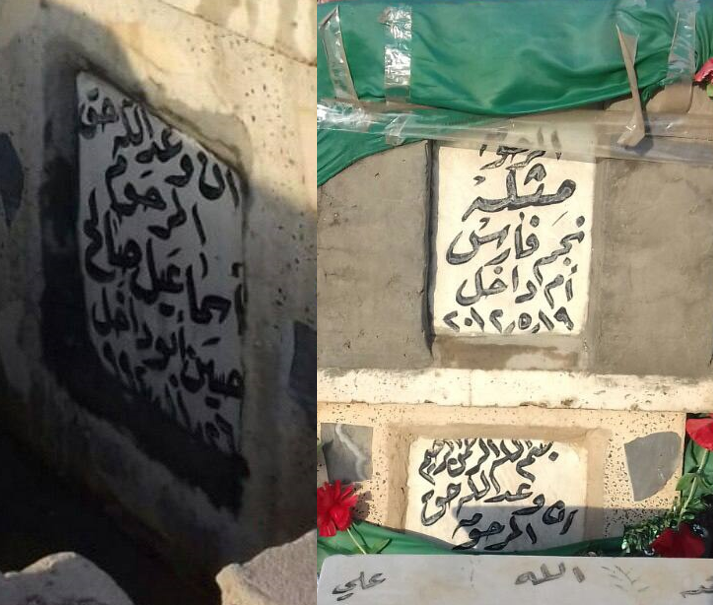 ان وعد الله حق
المرحوم
اسماعيل صالح
حسين ابو داخل
المرحومة
مثكله
نجم فارس
أم داخل
٢٠١٢،٥،١٩
بسم الله الرحمن الرحيم
ان وعد الله حق
المرحومة
الله
علي